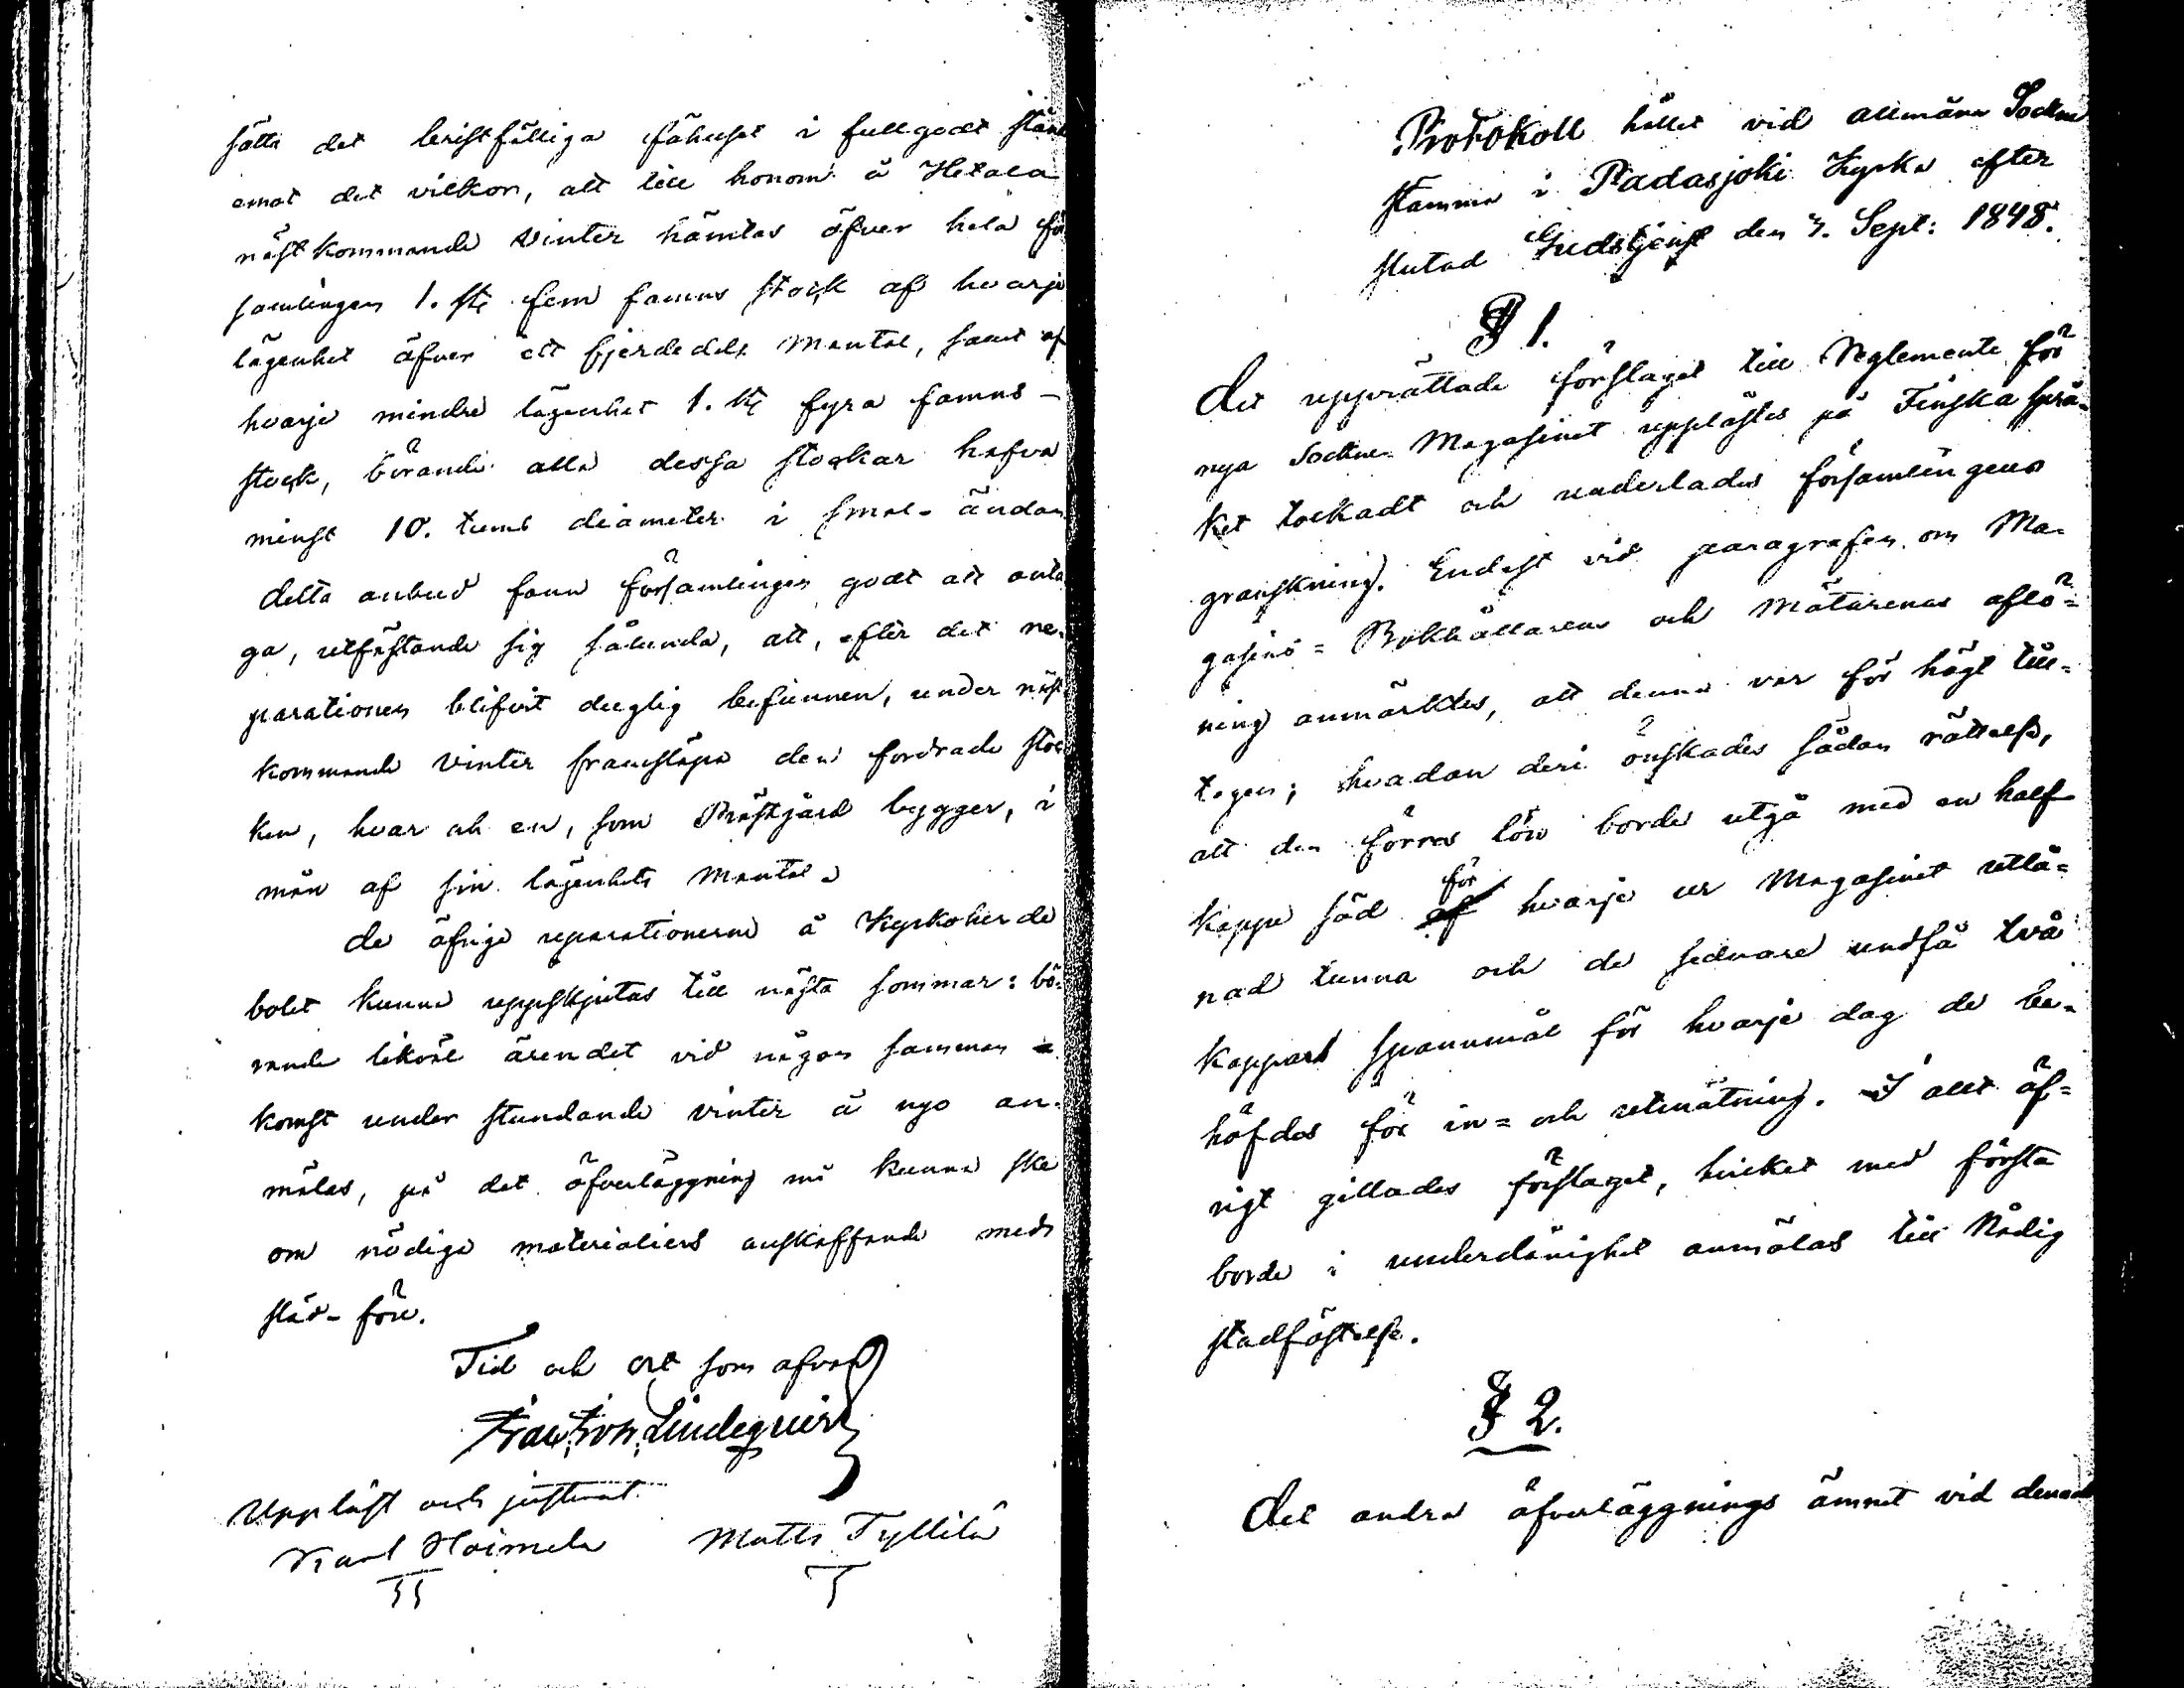 sätta det bristfälliga fähuset i fullgodt stånd
emot det vilkor, att till honom å Hetala
nästkommande vinter hämtas öfver hela för
samlingen 1. st: fem famns stock af hvarje
lägenhet öfver ett fjerdedels mantal, samt af
hvarje mindre lägenhet 1. st: fyra famns-
stock, börande alla dessa stockar hafva
minst 10. tums diameter i smal-ändan
detta anbud fann församlingen godt att anta
ga, utfästande sig sålunda, att, efter det re-
parationen blifvit duglig befunnen, under näst
kommande vinter framsläpa den fordrade stoc
ken, hvar och en, som Prästgård bygger, i
mån af sin lägenhets mantal.
de öfriga reparationerne å Kyrkoherde
bolet kunna uppskjutas till nästa sommar: bö-
rande likväl ärendet vid någon samman
komst under stundande vinter å nyo an-
mälas, på det öfverläggning må kunna ske
om nödiga materialiers anskaffande med
släd-före.
Tid och ort som ofvan
Lindeqvist
Uppläst och justerat.
Karl Hoimela Matts Tyllilä
Protokoll hållet vid allmänn Sockne
stämma i Padasjoki Kyrka efter
slutad Gudstjenst den 3. Sept: 1848.
§ 1.
Det upprättade förslaget till Reglemente för
nya Sockne-Magasinet upplästes på Finska språ-
ket tolkadt och underlades församlingens
granskning. Endast vid paragrafen om Ma-
gasins=Bokhållarens och Mätarenas aflö=
ning anmärktes, att denna var för högt till=
tagen; hvadan deri önskades sådan rättelse,
att den förres lön borde utgå med en half
kappe säd för hvarje ur Magasinet utlå=
nad tunna och de sednare undfå två
kappars spannmål för hvarje dag de be=
höfdes för in= och utmätning. I allt öf=
rigt gillades förslaget, hvilket med första
borde i underdånighet anmälas till Nådig
stadfästelse.
§ 2.
Det andra öfverläggnings ämnet vid denna